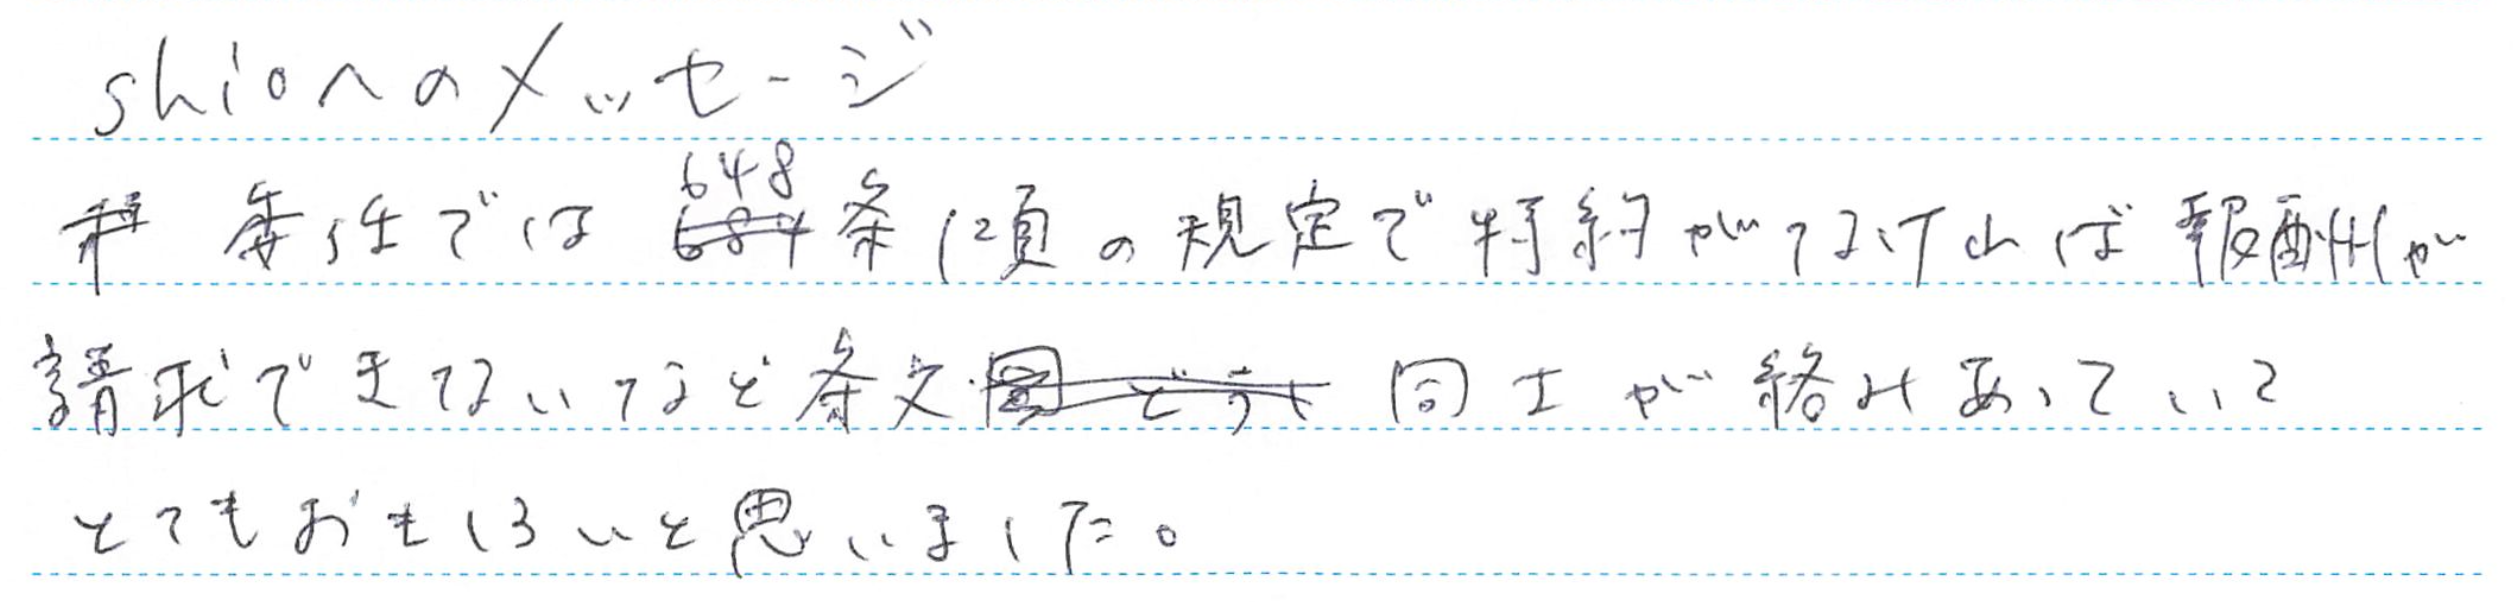 shioへのメッセージ
委任では648条1項の規定で特約がなければ報酬が
請求できないなど条文同士が絡みあっていて
とてもおもしろいと思いました。